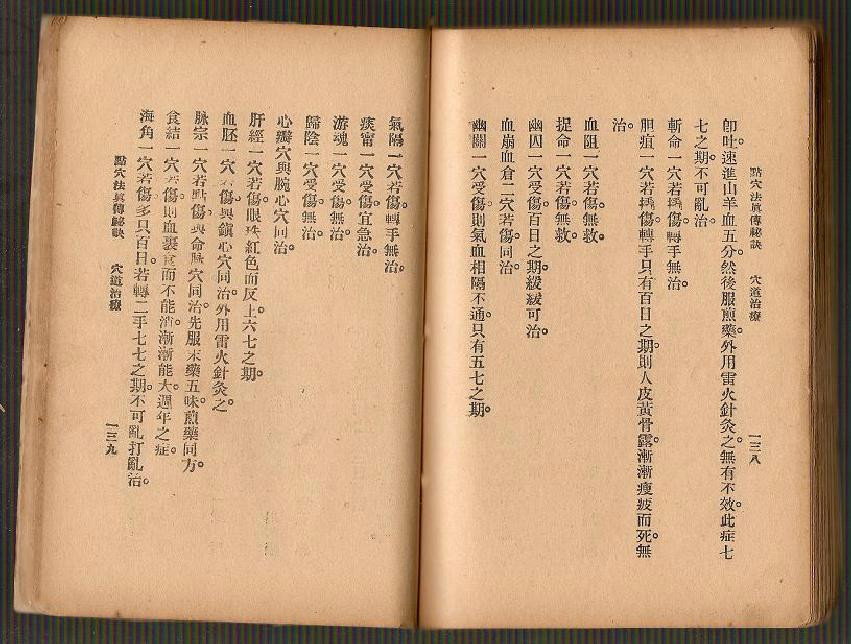 點穴法眞傳祕訣 穴道治療 一三八
卽吐。速進山羊血五分。然後服煎藥。外用雷火針灸之。無有不效。此症七
七之期。不可亂治。
斬命一穴若 傷。轉手無治。
胆疽一穴若 傷。轉手只有百日之期。則人皮黃骨露。漸漸瘦疲而死。無
治。
血阻一穴若傷。無救。
提命一穴若傷無救。
幽囚一穴受傷百日之期。緩緩可治。
血崩血倉二穴若傷。同治。
幽關一穴受傷。則氣血相隔不通。只有五七之期。
氣隔一穴若傷。轉手無治。
痰 一穴受傷宜急治。
游魂一穴受傷無治。
歸陰一穴受傷無治。
心瓣穴與腕心穴同治。
肝經一穴若傷。眼珠紅色而反上。六七之期。
血胚一穴若傷。與鎭心穴同治。外用雷火針灸之。
脉宗一穴若點傷。與命脉穴同治。先服末藥五味。煎藥同方。
食結一穴若傷。則血裹 而不能消。漸漸能大。週年之症。
海角一穴若傷。多只百日。若轉二手。七七之期。不可亂打亂治。
點穴法眞傳祕訣 穴道治療 一三九